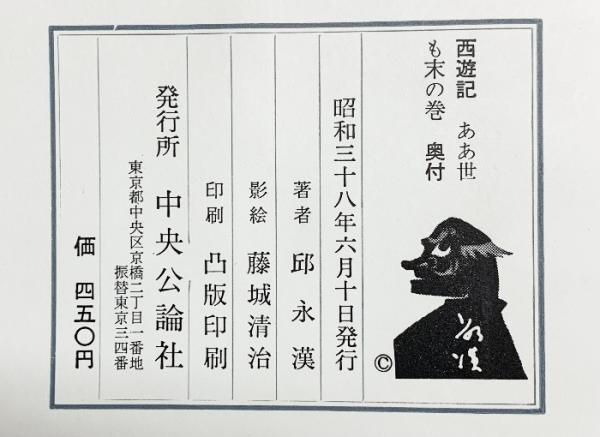 西遊記 ああ世
も末の巻 奥付
©
昭和三十八年六月十日発行
著者 邱永漢
影絵 藤城清治
印刷 凸版印刷
発行所 中央公論社
東京都中央区京橋二丁目一番地
振替東京三四番
価 四五〇円